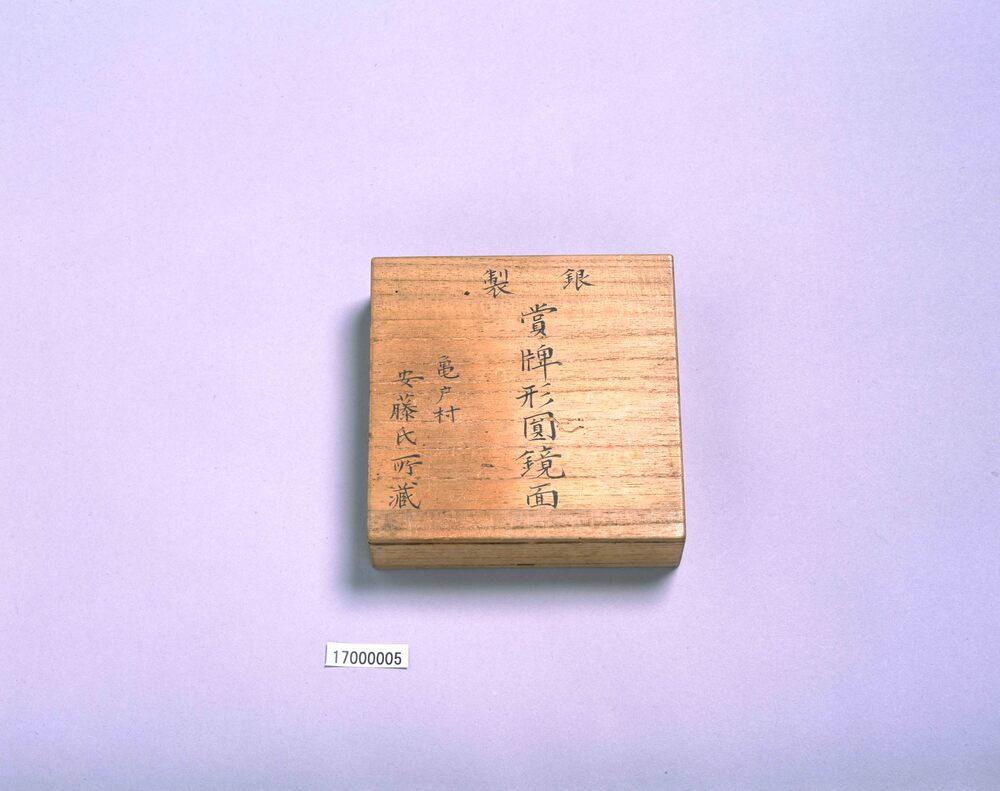 銀製
賞牌形圓鏡面
亀戸村
安藤氏所蔵
17000005